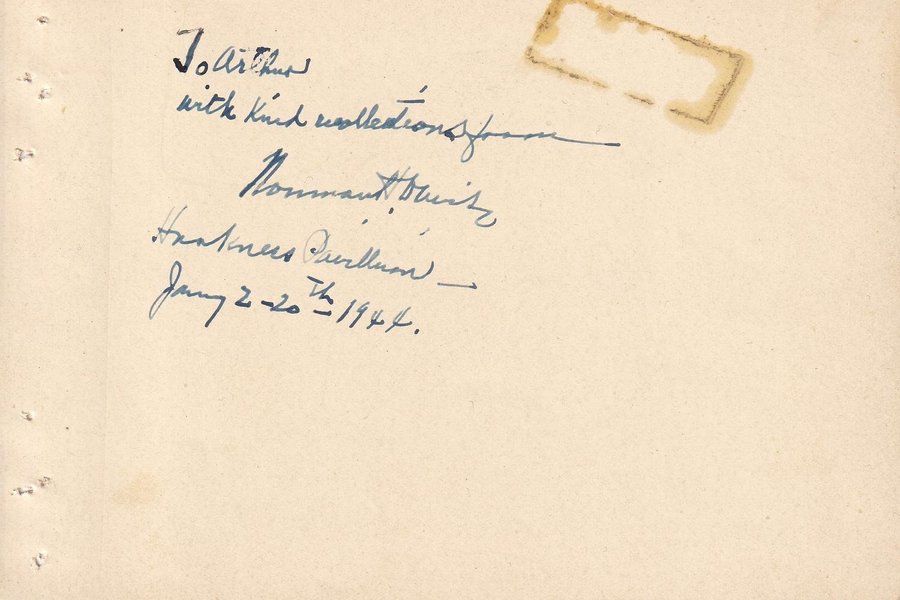 To Arthur
with kind recollections from
Norman H. Davis
Harkness Pavillion —
Jany 2-20th 1944.